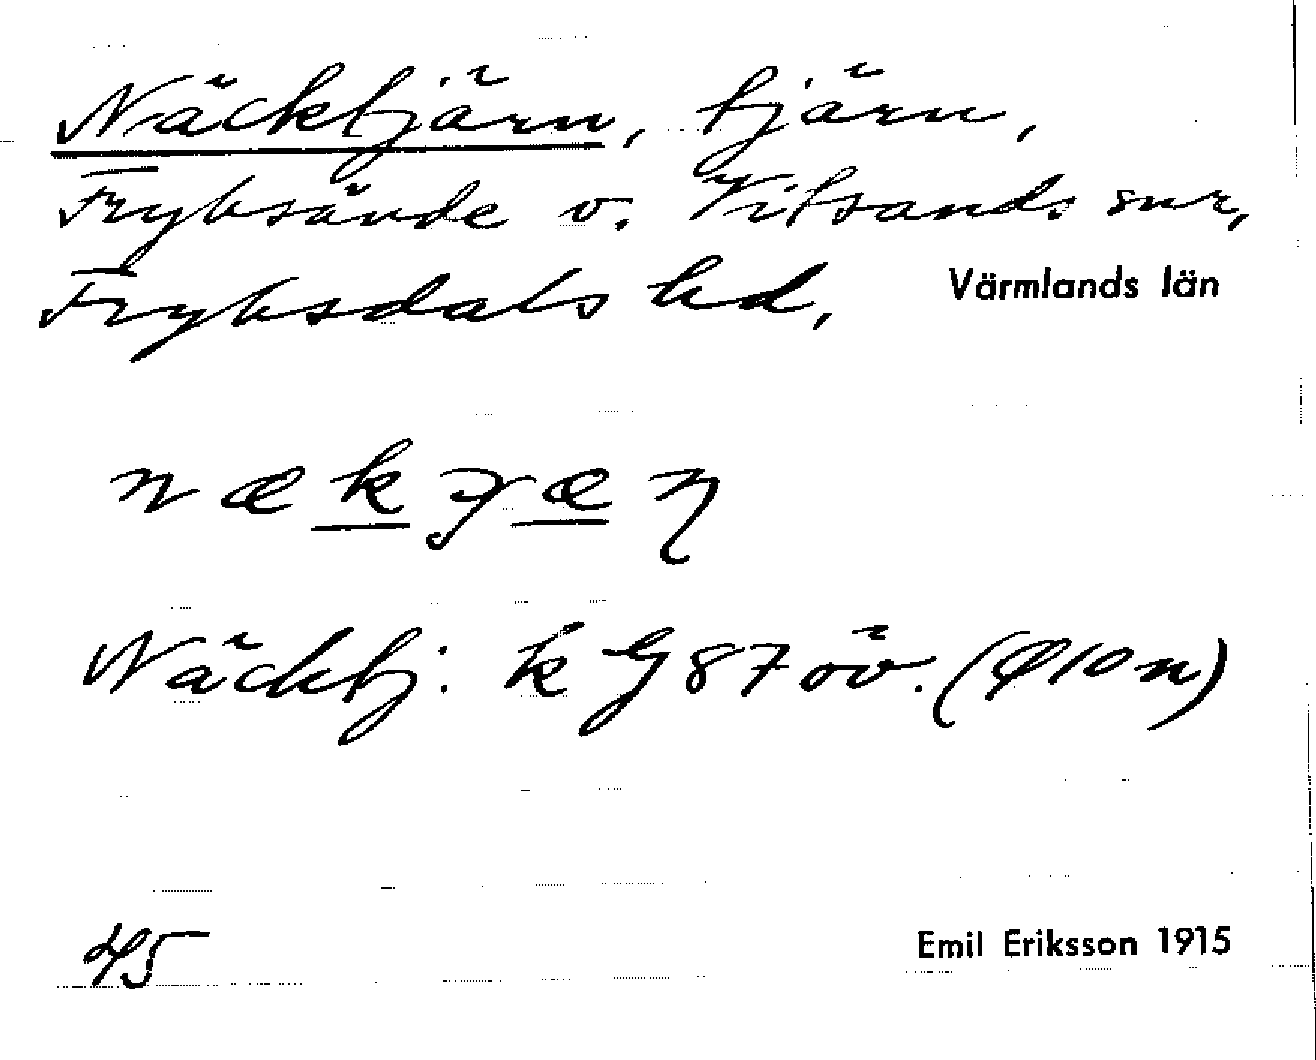 Näcktjärn, tjärn,
Fryksände o. Vitsands snr,
Fryksdals hd, Värmlands län
Näcktj: k G 87 öv. (Ø 10 n)
45
Emil Eriksson 1915